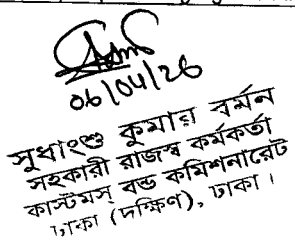 06/04/26
সুধাংশু কুমার বর্মন
সহকারী রাজস্ব কর্মকর্তা
কাস্টমস্ বন্ড কমিশনারেট
ঢাকা (দক্ষিণ), ঢাকা।